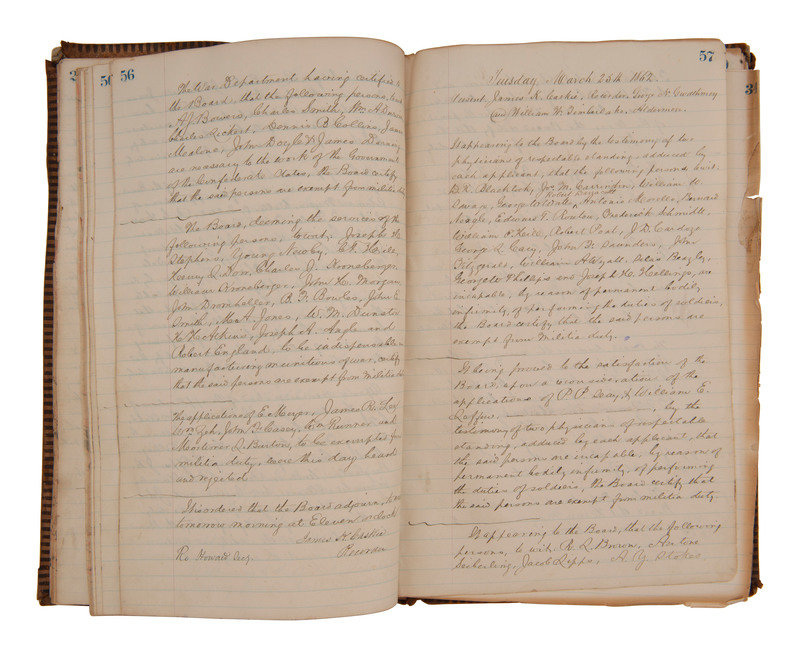 56
The War Department having certified to
the Board, that the following persons,
A. J. Bowers, Charles Smith, Wm. H.
Charles Eckert, Dennis B. Collins, James
Malone, John Doyle & James
are necessary to the work of the Government
of the Confederate States, the Board certify
that the said persons are exempt from militia
The Board, deeming the services of the
following persons, to wit, Joseph H.
Stephens, Young Newby,
Henry Charles J. Kroneberger,
Kroneberger, John H. Morgan,
John Dromheller, B. F. Bowles, John E.
Smith, A. Jones, W. M. Dunston
H. H. Joseph H. Nagle and
Robert England, to be indispensable in
manufacturing munitions of war, certify
that the said persons are exempt from militia
The applications of E. Meyer, James R.
John F. Casey, Wm Runner and
Mortimer Q. Burton, to be exempted from
militia duty, were this day heard
and rejected.
It is ordered that the Board adjourn,
tomorrow morning at Eleven o'clock
James K. Caskie
Recorder
Ro. Howard Secy.
57
Tuesday, March 25th, 1862.
Present, James K. Caskie, Recorder, George N. Gwathmey
and William W. Timberlake, Aldermen.
It appearing to the Board by the testimony of two
physicians of respectable standing, adduced by
each applicant, that the following persons, to wit,
Blackley, Jno. M. Carrington, William H.
Robert
George W. Antonio Bernard
Nagle, Edward T. Frederick Schmidt,
William O'Neill, Robert Post, J. D. Cardozo
George Q. Cary, John F. Saunders, John
Fitzgerald, William H. Wyatt,
Phillips and Joseph H. are
incapable, by reason of permanent bodily
infirmity, of performing the duties of soldiers,
the Board certify that the said persons are
exempt from militia duty.
It being proved to the satisfaction of the
Board, upon a reconsideration of the
applications of P. P. & William E.
by the
testimony of two physicians of respectable
standing, adduced by each applicant, that
the said persons are incapable, by reason of
permanent bodily infirmity, of performing
the duties of soldiers, the Board certify that
the said persons are exempt from militia duty.
It appearing to the Board, that the following
persons, to wit, R. Q. Brown,
Jacob Lipps, A. Y. Stokes